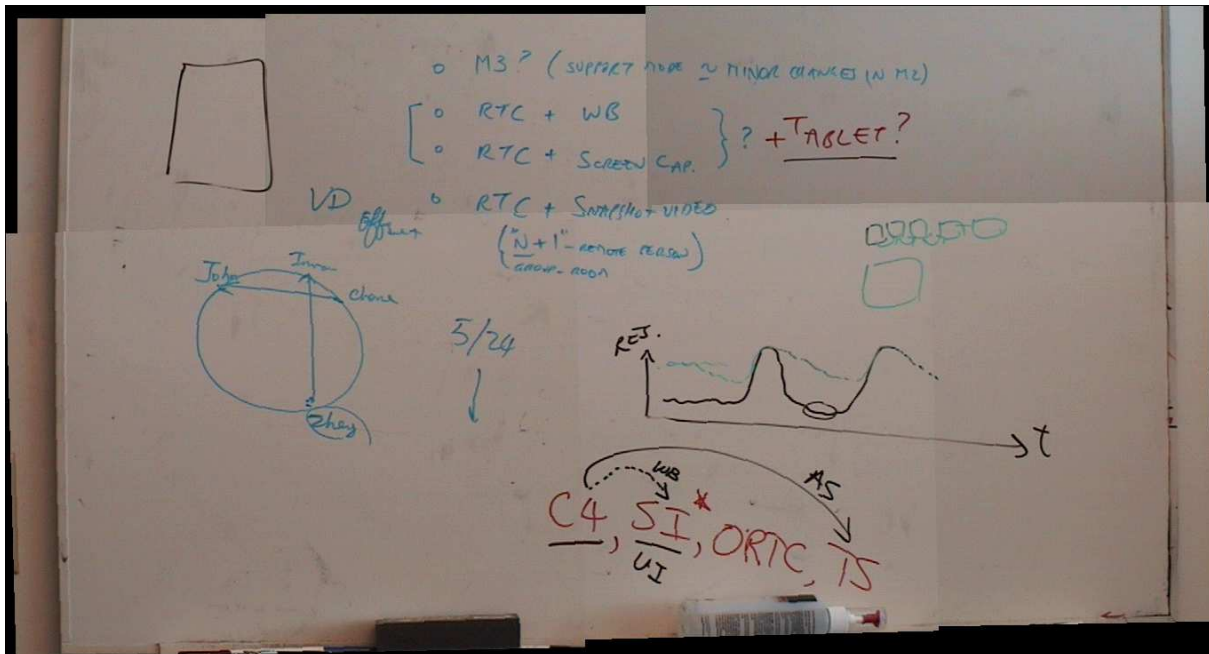 ○ M3? (SUPPORT MODE ≈ MINOR CHANGES IN M2)
○ RTC + WB
○ RTC + SCREEN CAP.
? + TABLET?
○ RTC + SNAPSHOT VIDEO
("N+1" - REMOTE PERSON)
GROUP-ROOM
VD
John
Zhey
5/24
REJ.
t
WB
AS
C4, SI*, ORTC, TS
UI